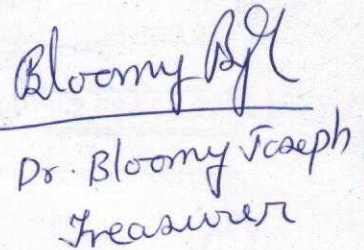 Bloomy
Dr. Bloomy Joseph
Treasurer